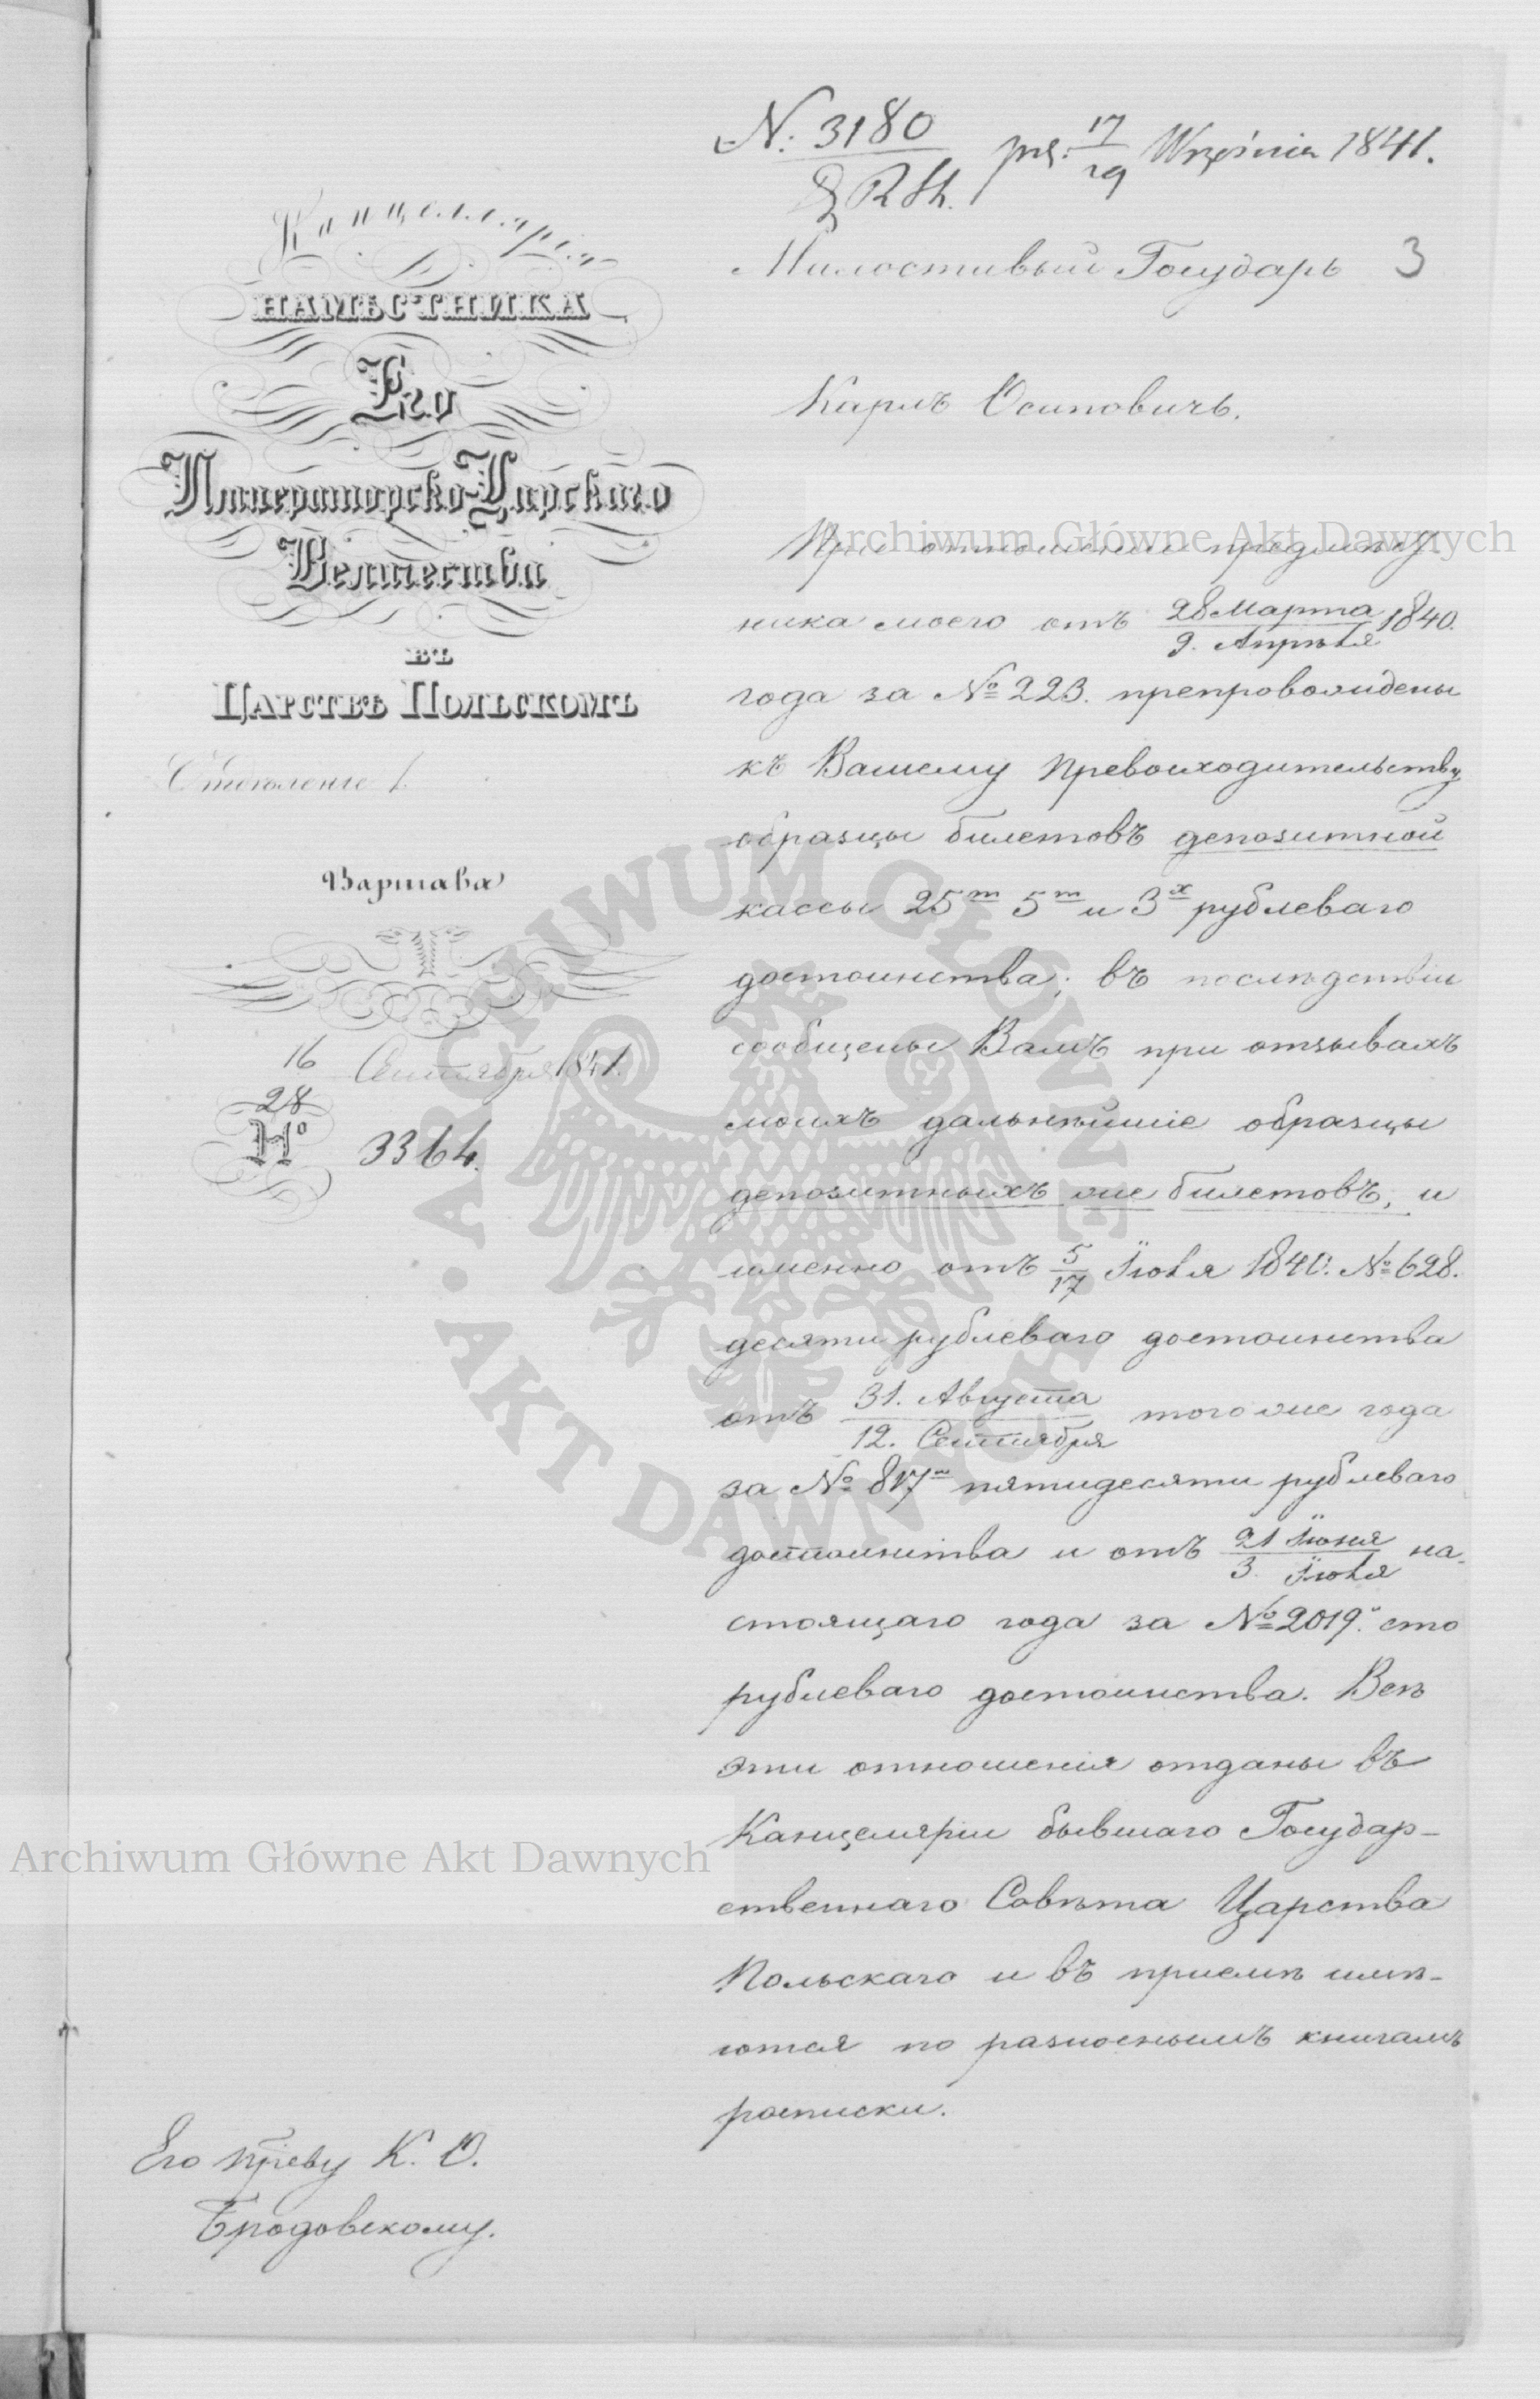 N: 3180
pr. 17/29 Września 1841.
3
Канцелярія
НАМѢСТНИКА
Его
Императорско-Царскаго
Величества
ВЪ
ЦАРСТВѢ ПОЛЬСКОМЪ
Отдѣленіе 1
Варшава
16/28 Сентября 1841.
Nо 3364.
Милостивый Государь
Карлъ Осиповичъ.
При отношеніи предмѣст
ника моего отъ 28 Марта/9. Апрѣля 1840.
года за № 223. препровождены
къ Вашему Превосходительству
образцы билетовъ депозитной
кассы 25ти 5ти и 3х рублеваго
достоинства; въ послѣдствіи
сообщены Вамъ при отзывахъ
моихъ дальнѣйшіе образцы
депозитныхъ же билетовъ, и
именно отъ 5/17 Іюля 1840. № 628.
десяти рублеваго достоинства
отъ 31. Августа/12. Сентября того же года
за № 817 пятидесяти рублеваго
достоинства и отъ 21 Іюня/3. Іюля на-
стоящаго года за № 2019. сто
рублеваго достоинства. Всѣ
эти отношенія отданы въ
Канцеляріи бывшаго Государ-
ственнаго Совѣта Царства
Польскаго и въ пріемѣ имѣ-
ются по разноснымъ книгамъ
росписки.
Его Пр-еву К. О.
Бродовскому.
Archiwum Główne Akt Dawnych
Archiwum Główne Akt Dawnych
ARCHIWUM GŁÓWNE · AKT DAWNYCH ·